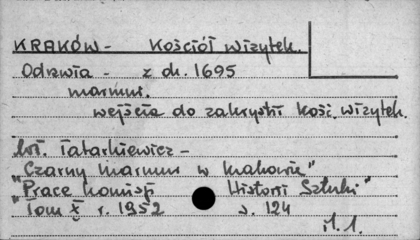 KRAKÓW - Kościół wizytek.
Odrzwia - z ok. 1695
marmur.
wejścia do zakrystii kość. wizytek.
Wł. Tatarkiewicz -
"Czarny marmur w Krakowie"
"Prace Komisji Historii Sztuki"
Tom X r. 1952 s. 124
il. 1.